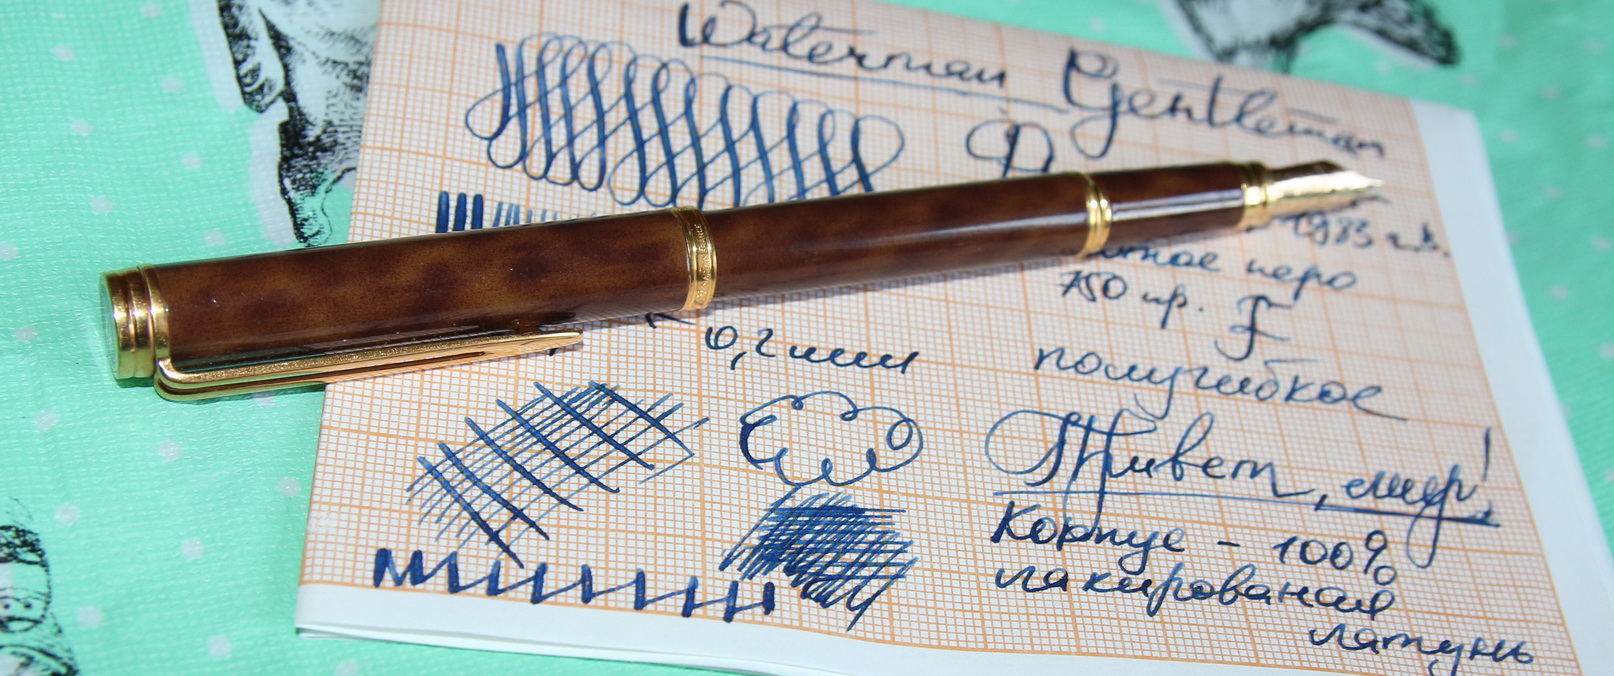 Waterman Gentleman
1983 г.в.
перо
750 пр. F
0,2 мм
полугибкое
Привет, мир!
Корпус - 100%
лакированая
латунь